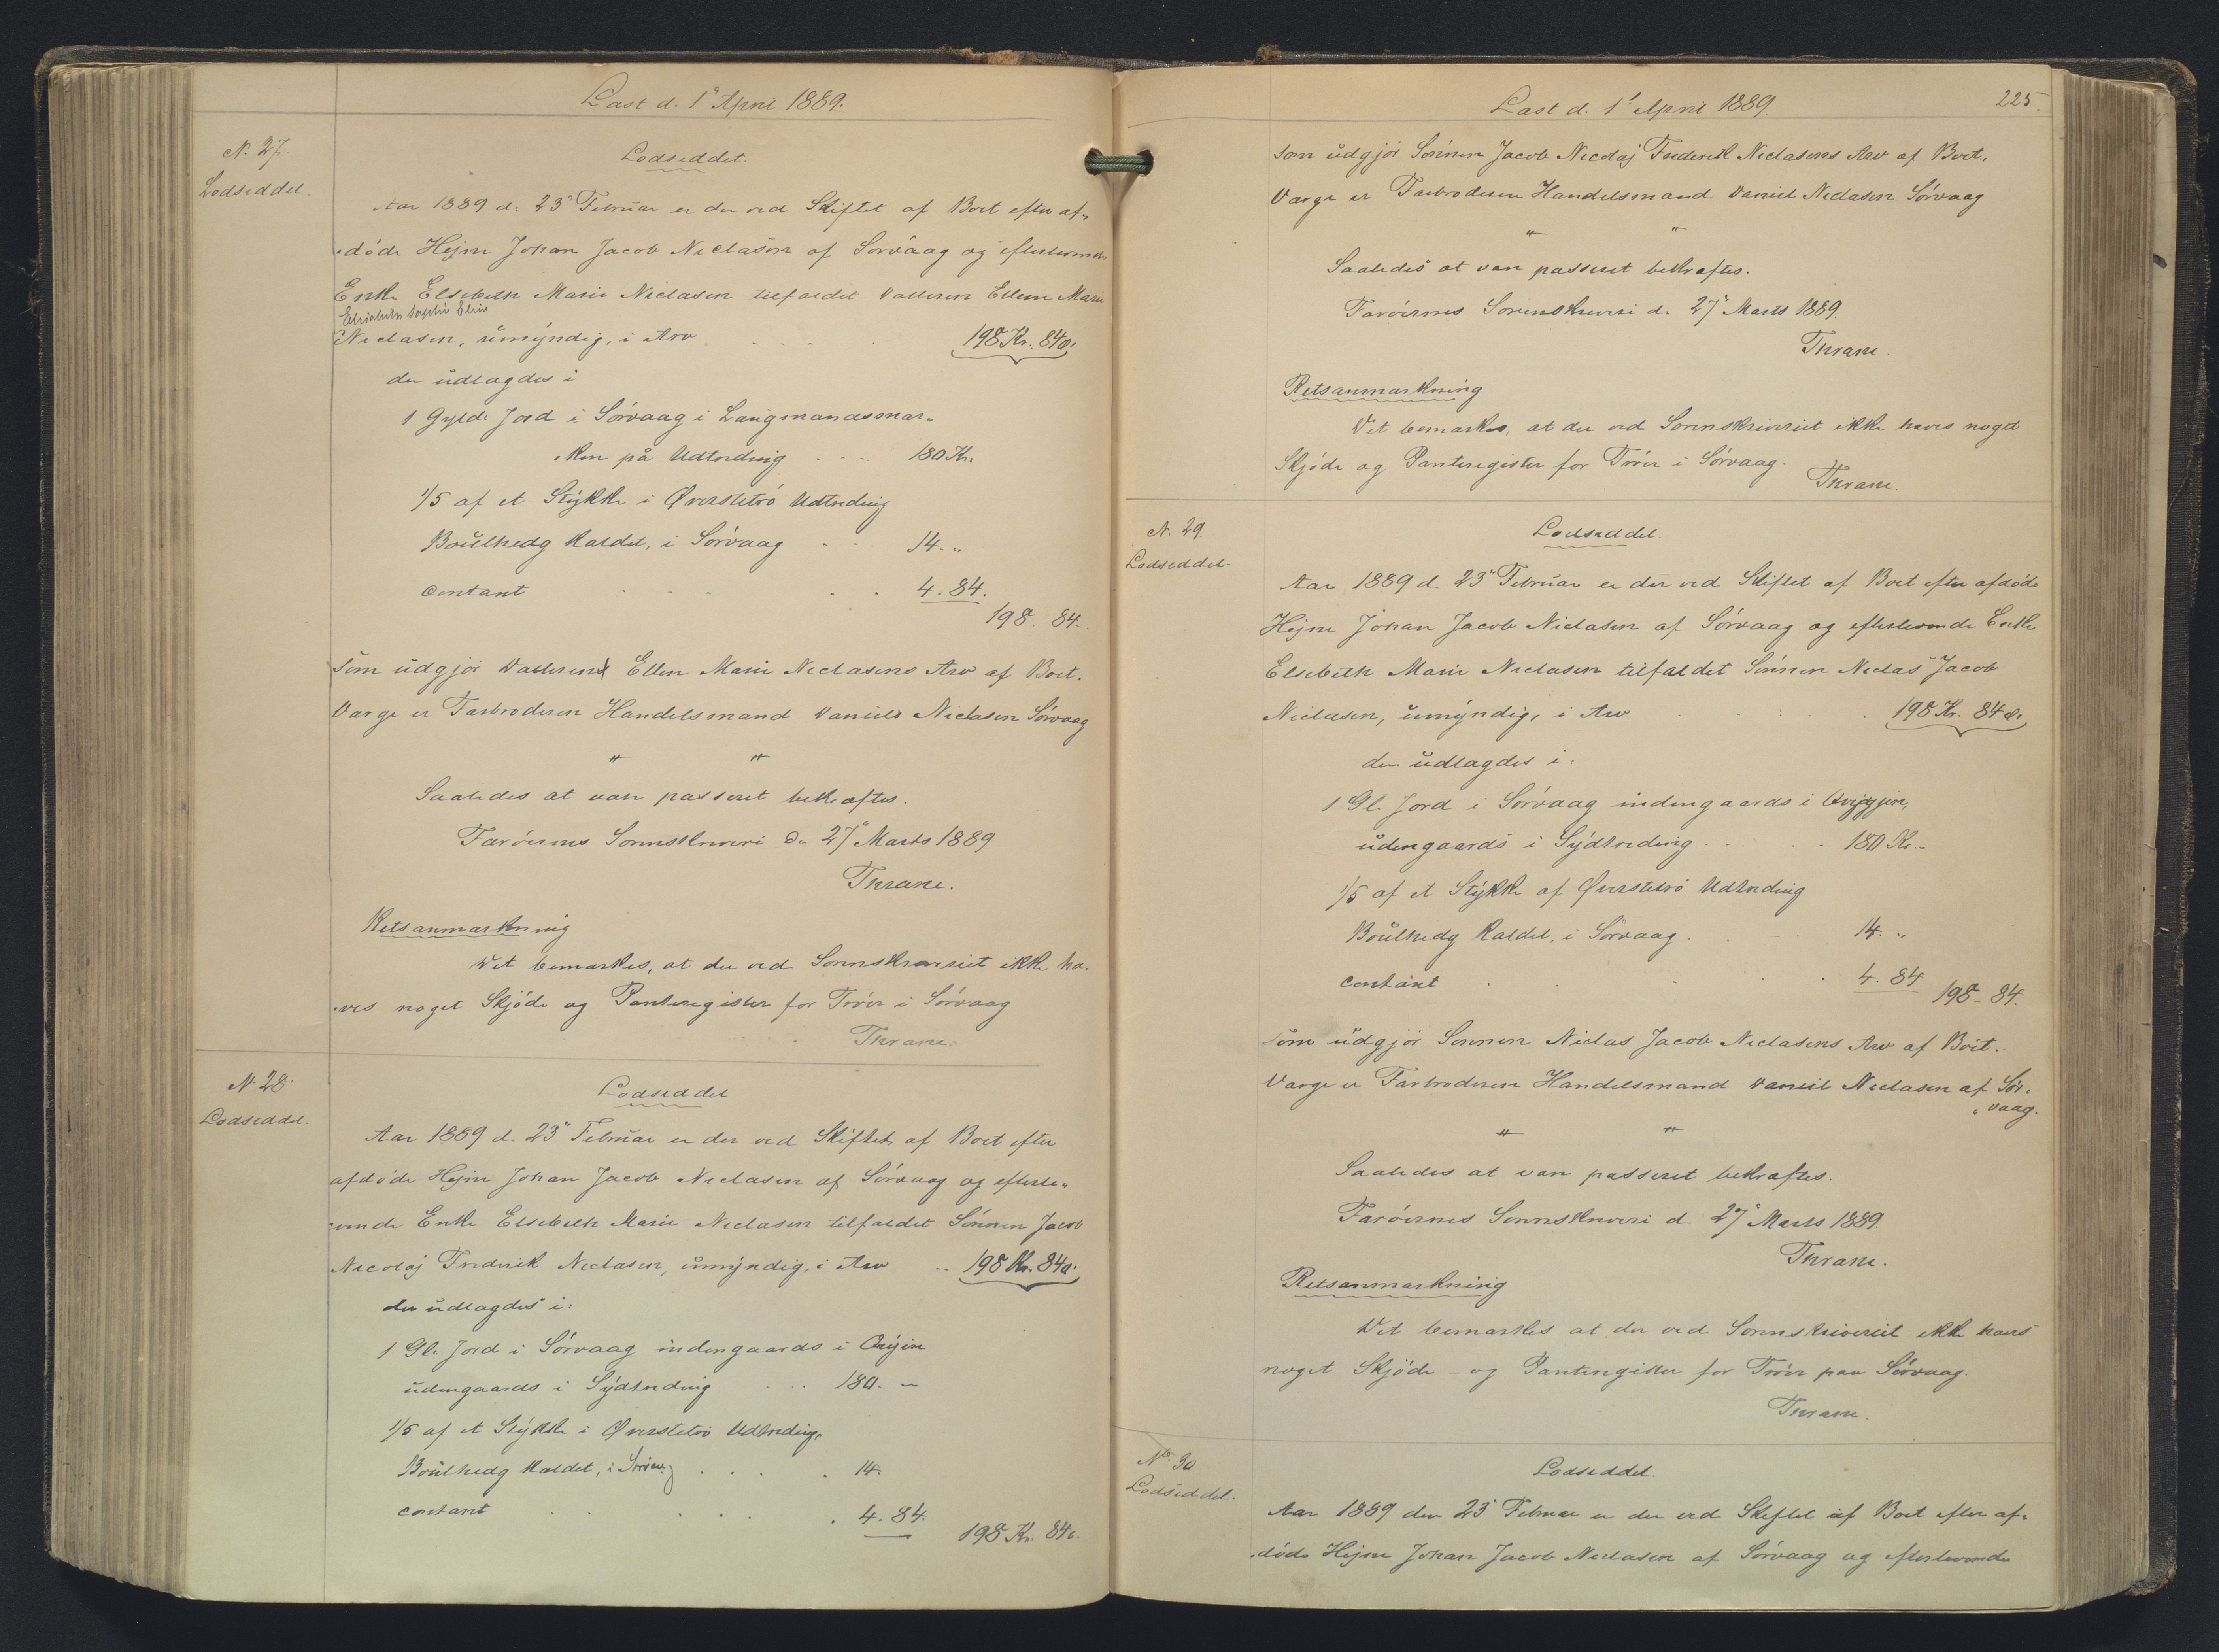 Læst d. 1' April 1889.
N. 27.
Lodseddel.
Lodseddel.
Aar 1889 d. 23' Februar er der ved Skiftet af Boet efter af-
døde Hejne Johan Jacob Niclasen af Sörvaag og efterlevende
Enke Elsebeth Marie Niclasen tilfaldet Datteren Ellen Marie
Elisabeth Sophie Eline
Niclasen, umyndig, i Arv 198 Kr. 84 Ø.
der udlagdes i
1 Gylde Jord i Sörvaag i Laugmandsmar-
ken på Udtreding 180 Kr.
1/5 af et Stykke i Øverstetrö Udtreding
Boulhedg kaldet, i Sörvaag 14. "
contant 4. 84.
198 84.
som udgjör Datteren Ellen Marie Niclasens Arv af Boet.
Værge er Farbroderen Handelsmand Daniel Niclasen Sörvaag
" "
Saaledes at være passeret bekræftes.
Færöernes Sorenskriveri d. 27' Marts 1889
Thrane.
Retsanmærkning
Det bemærkes, at der ved Sorenskriveriet ikke ha-
ves noget Skjöde og Panteregister for Tröer i Sörvaag
Thrane.
N. 28.
Lodseddel.
Lodseddel
Aar 1889 d. 23' Februar er der ved Skiftet af Boet efter
afdöde Hejne Johan Jacob Niclasen af Sörvaag og efterle-
vende Enke Elsebeth Marie Niclasen tilfaldet Sönnen Jacob
Nicolaj Frederik Niclasen, umyndig, i Arv 198 Kr. 84 Ø.
der udlagdes i:
1 Gl. Jord i Sörvaag indengaards i
udengaards i Sydtreding 180. "
1/5 af et Stykke i Øverstetrö Udtreding,
Boulhedg kaldet, i Sörvaag 14.
contant 4. 84.
198 Kr. 84 Ø.
Læst d. 1' April 1889.
225.
som udgjör Sönnen Jacob Nicolaj Frederik Niclasens Arv af Boet.
Værge er Farbroderen Handelsmand Daniel Niclasen Sörvaag
" "
Saaledes at være passeret bekræftes.
Færöernes Sorenskriveri d. 27' Marts 1889.
Thrane.
Retsanmærkning
Det bemærkes, at der ved Sorenskriveriet ikke haves noget
Skjöde og Panteregister for Tröer i Sörvaag.
Thrane.
N. 29.
Lodseddel.
Lodseddel.
Aar 1889 d. 23' Februar er der ved Skiftet af Boet efter afdöde
Hejne Johan Jacob Niclasen af Sörvaag og efterlevende Enke
Elsebeth Marie Niclasen tilfaldet Sönnen Niclas Jacob
Niclasen, umyndig, i Arv 198 Kr. 84 Ø.
der udlagdes i:
1 Gl. Jord i Sörvaag indengaards i
udengaards i Sydtreding 180 Kr. -
1/5 af et Stykke af Øverstetrö Udtreding
Boulhedg kaldet, i Sörvaag. 14. "
contant 4. 84 198. 84.
som udgjör Sönnen Niclas Jacob Niclasens Arv af Boet.
Værge er Farbroderen Handelsmand Daniel Niclasen af Sör-
vaag.
" "
Saaledes at være passeret bekræftes.
Færöernes Sorenskriveri d. 27' Marts 1889.
Thrane.
Retsanmærkning
Det bemærkes at der ved Sorenskriveriet ikke haves
noget Skjöde - og Panteregister for Tröer paa Sörvaag.
Thrane.
No 30
Lodseddel.
Lodseddel.
Aar 1889 den 23' Februar er der ved Skiftet af Boet efter af-
döde Hejne Johan Jacob Niclasen af Sörvaag og efterlevende